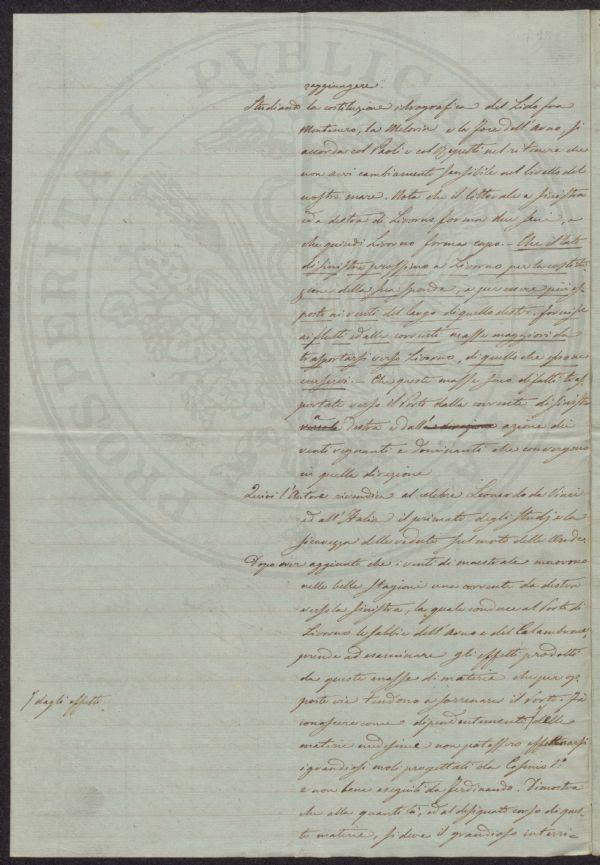 raggiungere.
Studiando la costituzione idrografica del Lido fra
Montenero, la Meloria e la foce dell'Arno si
accorda col Paoli e col Repetti nel ritenere che
non avvi cambiamento sensibile nel livello del
nostro mare. Nota che il littorale a sinistra
ed a destra di Livorno forma due seni, e
che quindi Livorno forma capo. – Che il lato
di sinistra prossimo a Livorno per la costitu-
zione della sua sponda, e per essere più es-
posto ai venti del largo di quello destro, fornisce
ai flutti ed alle correnti masse maggiori da
trasportarsi verso Livorno, di quello che esso ne
conservi. – Che queste masse sono difatti tras-
portate verso il Porto dalla corrente di sinistra
a destra e dall' azione dei
venti regnanti e dominanti che convergono
in quella direzione
Quivi l'Autore rivendica al celebre Leonardo da Vinci
ed all'Italia il primato degli studj e la
sicurezza delle vedute sul moto delle onde.
Dopo aver aggiunto che i venti di maestrale muovono
nelle belle stagioni una corrente da destra
verso la sinistra, la quale conduce al Porto di
Livorno le sabbie dell'Arno e del Calambrone,
prende ad esaminare gli effetti prodotti
da queste masse di materia che per op-
poste vie tendono a serrenare il Porto. Fa
conoscere come dipendentemente delle
dagli effetti
materie medesime non potessero effettuarsi
i grandiosi moli progettati da Cosimo I.º
e non bene eseguiti da Ferdinando. Dimostra
che alla quantità, ed al corso di ques-
te materie, si deve il grandioso interri-